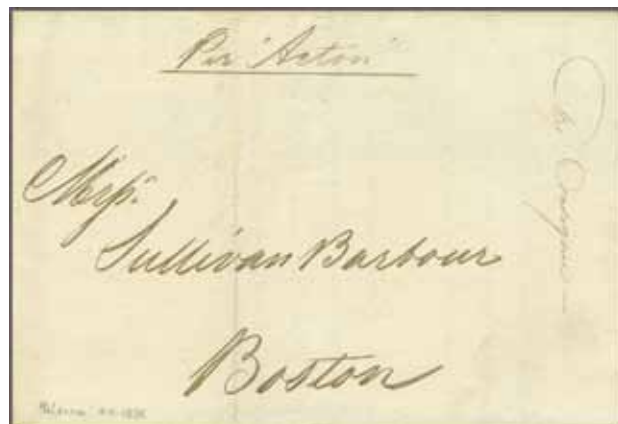 Per "Acton"
Mess.
Sullivan Barbour
Boston